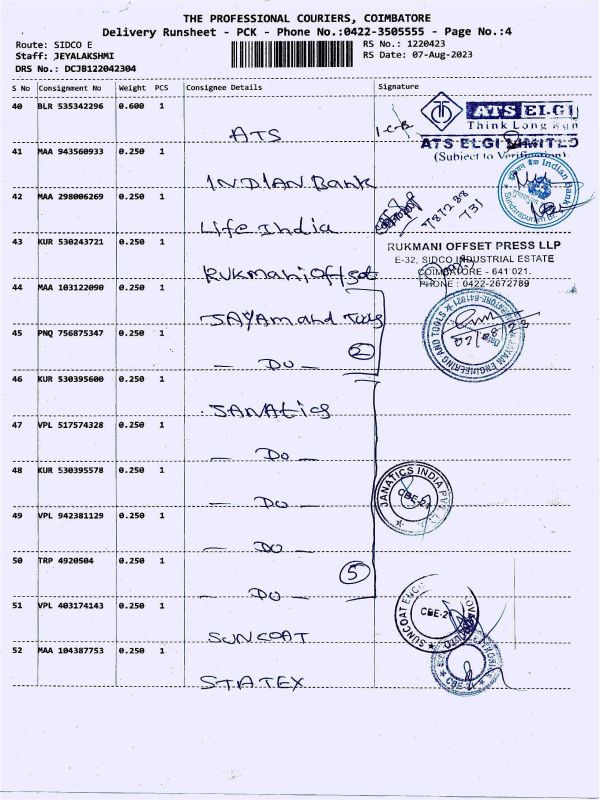 THE PROFESSIONAL COURIERS, COIMBATORE
Delivery Runsheet - PCK - Phone No.:0422-3505555 - Page No.:4
Route: SIDCO E
Staff: JEYALAKSHMI
DRS No.: DCJB122042304
RS No.: 1220423
RS Date: 07-Aug-2023
S No Consignment No Weight PCS Consignee Details Signature
40 BLR 535342296 0.600 1 ATS
ATS ELGI
Think Long Run
ATS ELGI LIMITED
(Subject to Verification)
41 MAA 943560933 0.250 1 INDIAN Bank
Indian Bank
42 MAA 298006269 0.250 1 Life India
43 KUR 530243721 0.250 1 RUKmani offset
RUKMANI OFFSET PRESS LLP
E-32, SIDCO INDUSTRIAL ESTATE
COIMBATORE - 641 021.
PHONE : 0422-2672789
44 MAA 103122090 0.250 1 JAYAM and Tools
45 PNQ 756875347 0.250 1 — Do — 2
46 KUR 530395600 0.250 1 JANAtics
47 VPL 517574328 0.250 1 — Do —
48 KUR 530395578 0.250 1 — Do —
JANATICS INDIA PVT.
CBE-21
49 VPL 942381129 0.250 1 — Do —
50 TRP 4920504 0.250 1 — Do — 5
51 VPL 403174143 0.250 1 SUNCOAT
SUNCOAT
CBE-2
52 MAA 104387753 0.250 1 STATEX